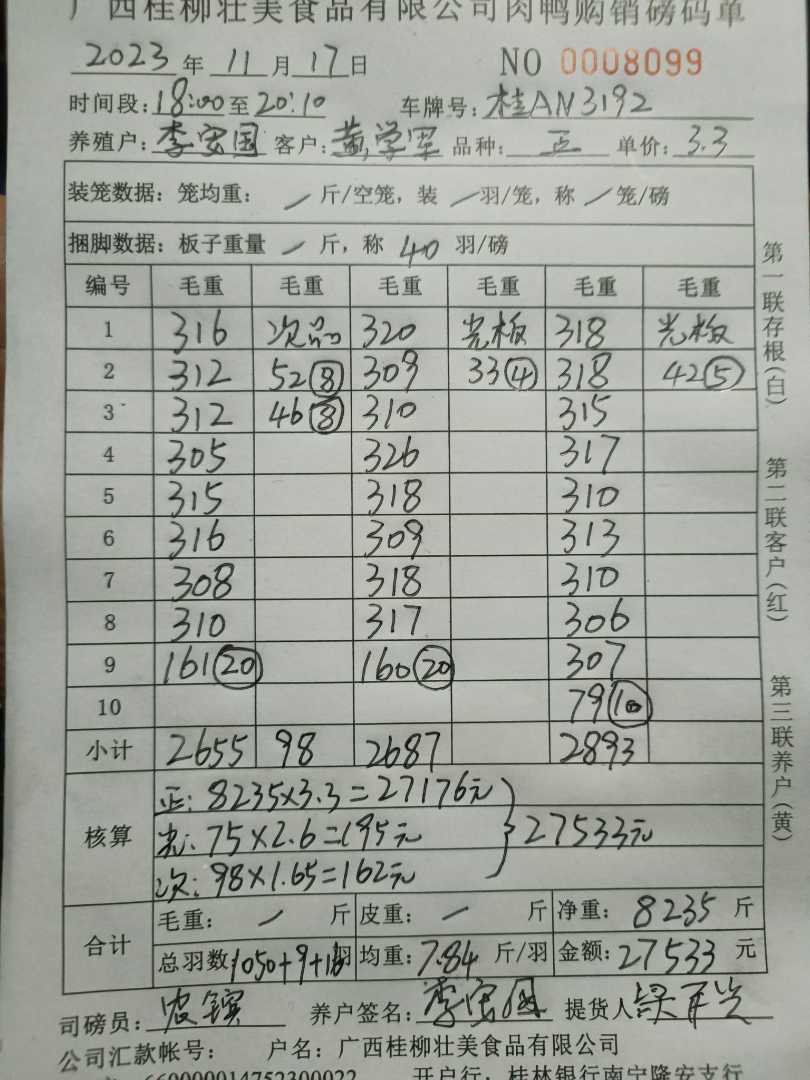 广西桂柳壮美食品有限公司肉鸭购销磅码单
2023年11月17日 NO 0008099
时间段:18:00至20:10 车牌号:桂AN3192
养殖户:李宏国 客户:黄学军 品种:正 单价:3.3
装笼数据:笼均重: / 斤/空笼,装 / 羽/笼,称 / 笼/磅
捆脚数据:板子重量 / 斤,称 40 羽/磅
编号 毛重 毛重 毛重 毛重 毛重 毛重
1 316 次品 320 光板 318 光板
2 312 52⑧ 309 33④ 318 42⑤
3 312 46⑧ 310 315
4 305 326 317
5 315 318 310
6 316 309 313
7 308 318 310
8 310 317 306
9 161⑳ 160⑳ 307
10 79⑩
小计 2655 98 2687 2893
核算 正:8235×3.3=27176元
光:75×2.6=195元 } 27533元
次:98×1.65=162元
合计 毛重: / 斤 皮重: / 斤 净重: 8235 斤
总羽数1050+9+16羽 均重:7.84 斤/羽 金额:27533 元
司磅员: 养户签名:李宏国 提货人
公司汇款帐号: 户名:广西桂柳壮美食品有限公司
660000014752300022 开户行:桂林银行南宁隆安支行
第一联存根(白)
第二联客户(红)
第三联养户(黄)